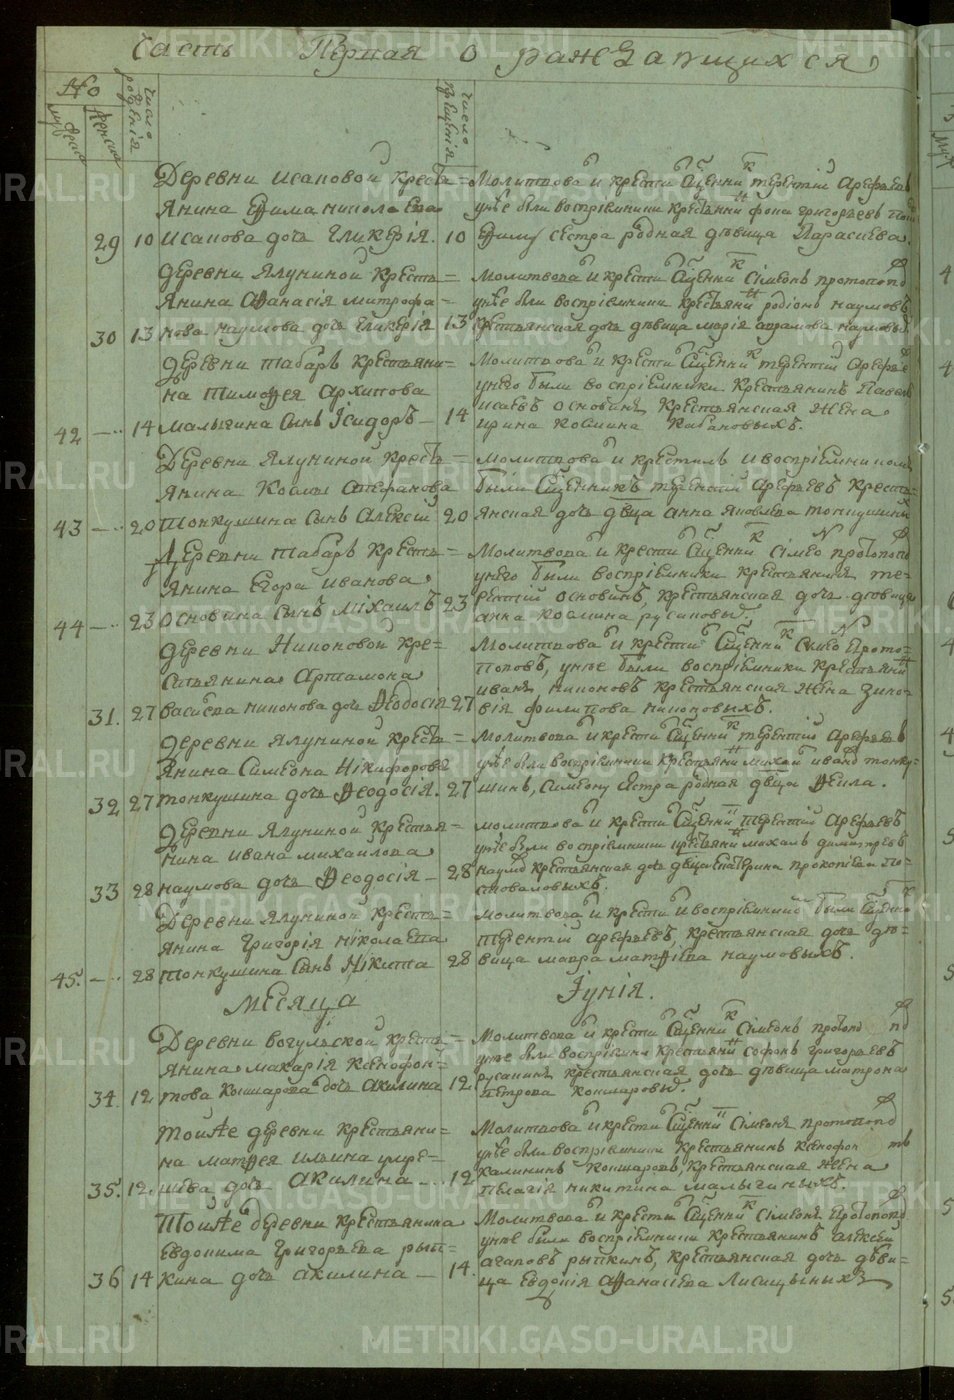 Часть Первая о раждающихся
No
число рождения
число крещения
Деревни исаковой кресть=
янина Ѳома николаева
29 10 исакова дочь гликерiя. 10
Молитвова и крести Сщенник терентiй Арефьевъ
унее были воспрiемники крестьянин фока григорьевъ
Ѳиму сестра родная дѣвица Парасиева.
деревни Ялуниной кресть=
янина аѲанасiя митрофа=
30 13 нова наумова дочь гликерiя 13
молитвова и крести Сщенник Сiмеонъ протопопо
унее были воспрiемники крестьянин родiонъ наумовъ
крестьянская дочь дѣвица марiя абрамова наумовы
деревни табаръ крестьяни=
на тимоѲея Архипова
42 14 малыгина сынъ Iсидоръ 14
молитвова и крести Сщенник терентий Арефье
унего были воспрiемники крестьянинъ Павелъ
исаевъ основинъ крестьянская жена
ирина козмина кабановыхъ.
Деревни Ялуниной кресть=
янина Козмы стефанова
43 20 тонкушина сынъ алексiй 20
молитвова и крестилъ и воспрiемником
были Сщенникъ терентiй арефьевъ кресть=
янская дочь двца анна яковлева тонкушины
Деревни табаръ кресть=
янина Егора иванова
44 23 основина сынъ мiхаилъ 23
Молитвова и крести Сщенник Сiмео протопопо
унего были воспрiемники крестьянинъ те=
рентiй основинъ, крестьянская дочь дѣвица
анна козмина русиновы.
деревни Никоновой кре=
стьянина Артамона
31. 27 василева никонова дочь Ѳеодосiя 27
Молитвова и крести Сщенник Симео Прото=
поповъ, унее были воспрiемники крестьянин
иванъ никоновъ крестьянская жена Зино=
вiя филипова никоновыхъ.
деревни ялуниной кресть=
янина Симеона Нiкифорова
32 27 тонкушина дочь Ѳеодосiя. 27
молитвова и крести Сщенник терентiй арефьевъ
унее были воспрiемники крестьянин михаи иванов тонку=
шинъ, Симеону Сестра родная двца Ѳекла.
деревни ялуниной крестья=
нина ивана михаилова
33 28 наумова дочь Ѳеодосiя 28
молитвова и крести Сщенник Терентiй Арефьевъ
унее были воспрiемники крестьянин михаилъ димитреевъ
наумо крестьянская дочь двца екатерина прокопiева По=
стоваловыхъ.
Деревни Ялуниной кресть=
янина Григорiя нiколаева
45. 28 тонкушина сынъ Нiкита 28
молитвова и крести и воспрiемникомъ были Сщенно
терентiй арефьевъ крестьянская дочь дѣ=
вица мавра матѲiева наумовыхъ.
месяца Iунiя.
Деревни вогульской кресть=
янина макарiя ксенофон=
34. 12. това кошарова дочь акилина 12.
молитвова и крести Сщенник Сiмеонъ протопопо
унее были воспрiемники крестьянин Софонъ григорьевъ
русакинъ крестьянская дочь дѣвица матрона
петрова кошаровы.
тойже деревни крестьяни=
на матѲея ильина умре=
35. 12. шева дочь акилина 12
Молитвова и крести Сщенни Сiмеонъ протопопо
унее были воспрiемники крестьянинъ ксенофонтъ
калининъ кошаровъ, крестьянская жена
пелагiя никитина малыгиныхъ
тойже деревни крестьянина
евдокима григорьева рыт=
36 14 кина дочь акилина 14.
Молитвова и крести Сщенник Сiмеонъ Протопопо
унее были воспрiемники крестьянинъ алексей
агаповъ рыткинъ, крестьянская дочь дѣви=
ца евдокiя аѲанасiева Лисицыныхъ
METRIKI.GASO-URAL.RU